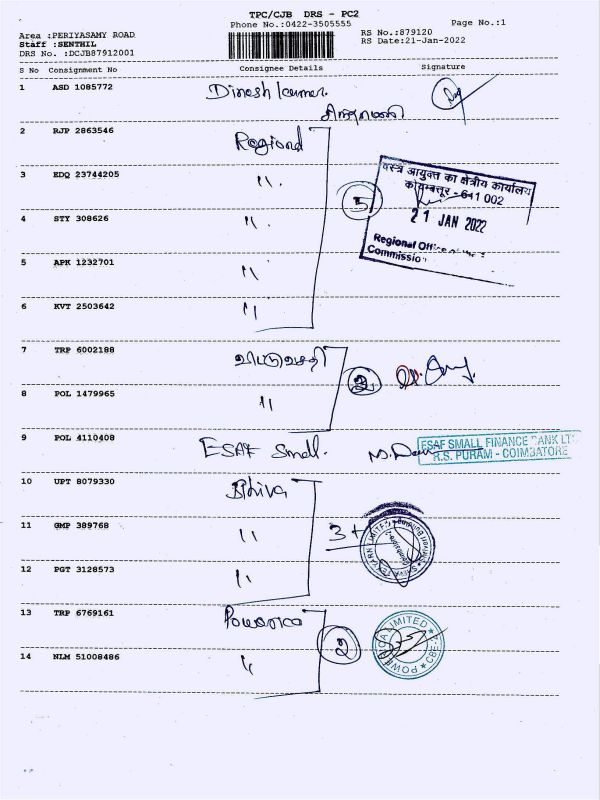 TPC/CJB DRS - PC2
Phone No.:0422-3505555
Page No.:1
Area :PERIYASAMY ROAD
Staff :SENTHIL
DRS No. :DCJB87912001
RS No.:879120
RS Date:21-Jan-2022
S No Consignment No Consignee Details Signature
1 ASD 1085772 Dinesh kumar.
2 RJP 2863546 Regional
3 EDQ 23744205 "
5
वस्त्र आयुक्त का क्षेत्रीय कार्यालय
कोयम्बत्तूर - 641 002
21 JAN 2022
Regional Office
Commissio
4 STY 308626 "
5 APK 1232701 "
6 KVT 2503642 "
7 TRP 6002188
2
8 POL 1479965 "
9 POL 4110408 ESAF Small.
ESAF SMALL FINANCE BANK LT
R.S. PURAM - COIMBATORE
10 UPT 8079330 Shiva
11 GMP 389768 "
3
12 PGT 3128573 "
13 TRP 6769161 Powerica
2
POWERICA LIMITED
CBE
14 NLM 51008486 "